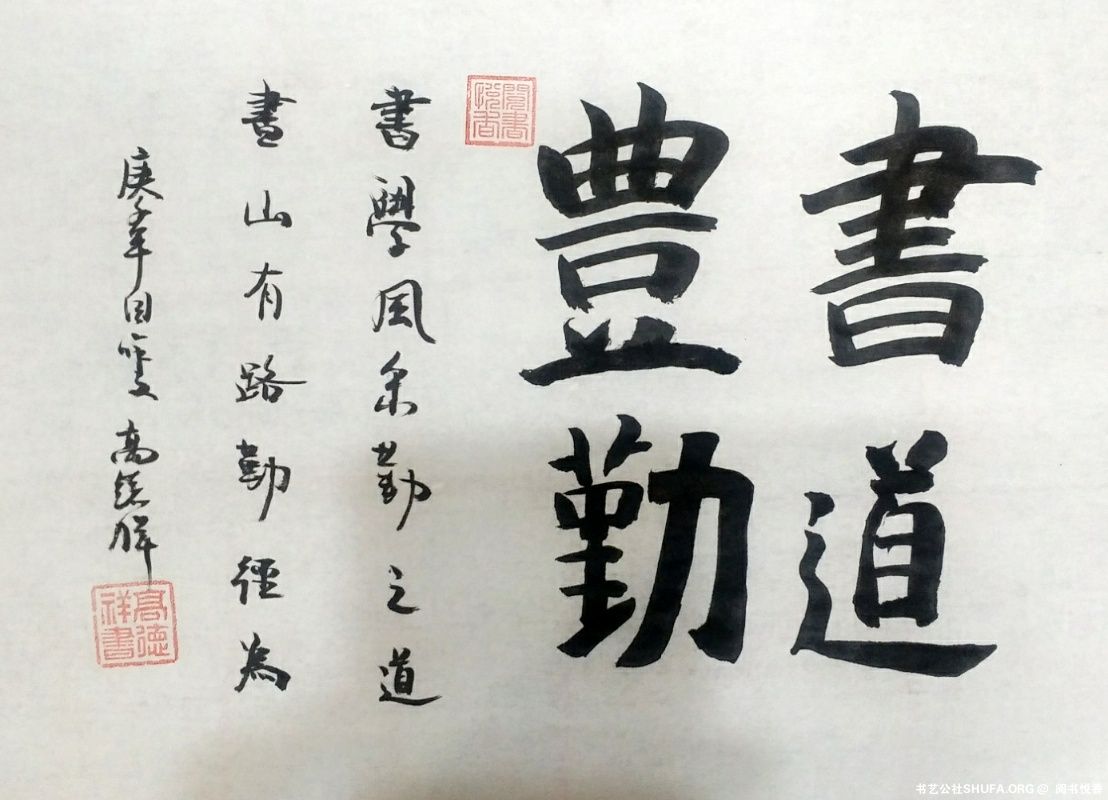 書道
豊勤
閱書悅者
書學風采勤之道
書山有路勤徑為
庚子年 高德祥
高德祥書
书艺公社SHUFA.ORG @ 阅书悦者